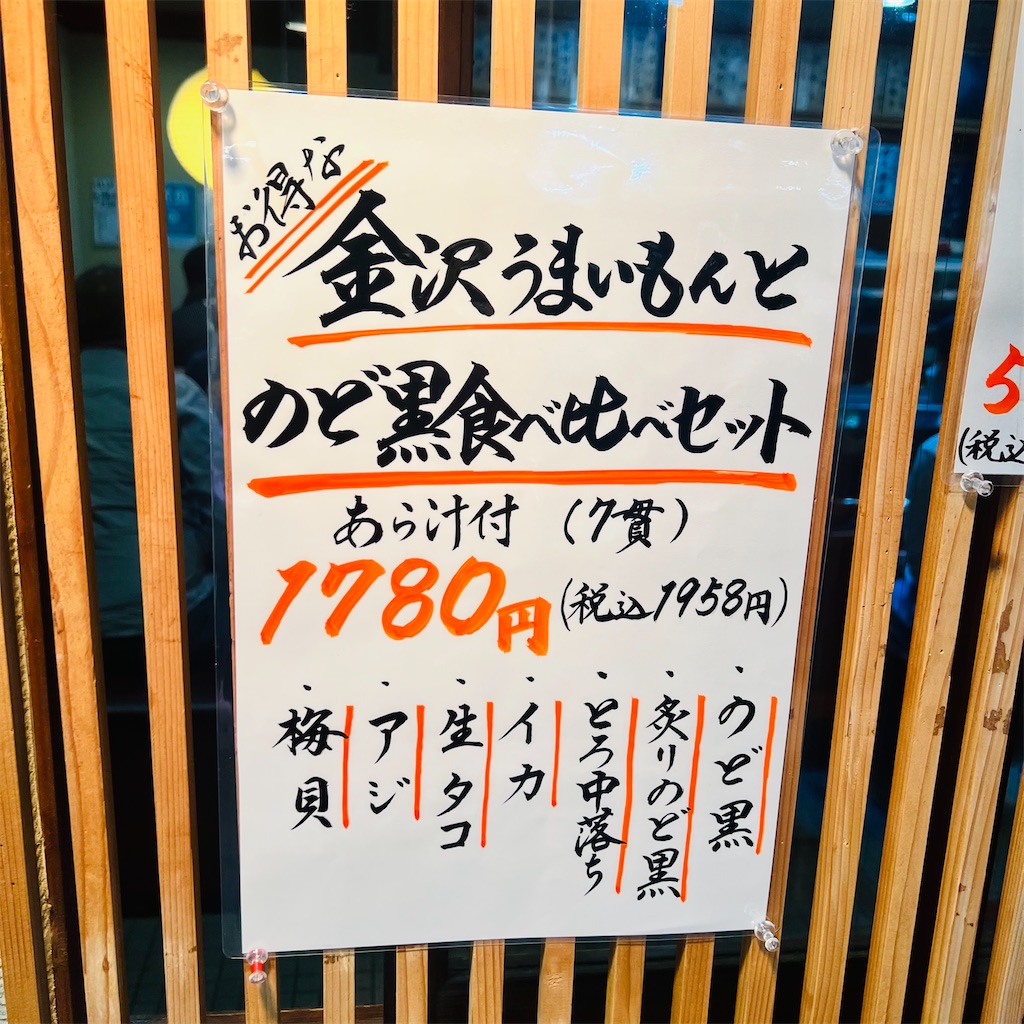 お得な
金沢うまいもんと
のど黒食べ比べセット
あら汁付（7貫）
1780円（税込1958円）
・のど黒
・炙りのど黒
・とろ中落ち
・イカ
・生タコ
・アジ
・梅貝
5
（税込